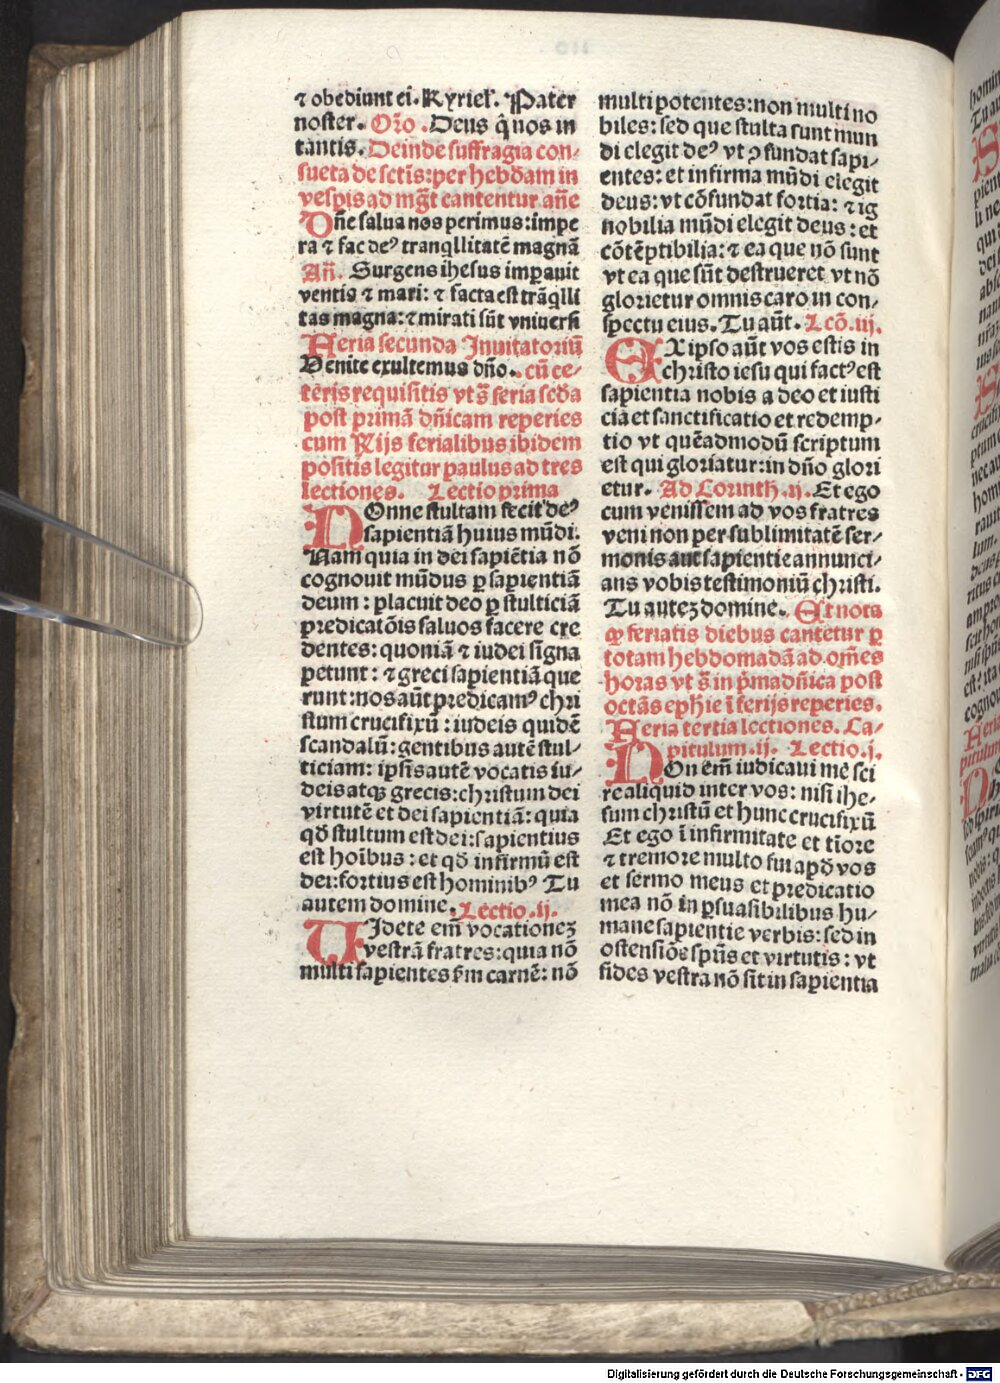 ⁊ obediunt ei. Kyriel̕. Pater
noster. Or̄o. Deus q̄ nos in
tantis. Deinde suffragia con⸗
sueta de sctīs: per hebdam̄ in
vespis ad mg̅t cantentur an̄e
Dn̄e salua nos perimus: impe
ra ⁊ fac deꝰ tranqllitatē magnā
An̄. Surgens ihesus imꝑauit
ventis ⁊ mari: ⁊ facta est trāqlli
tas magna: ⁊ mirati sūt vniuersi
Feria secunda Inuitatoriū
Venite exultemus dn̄o. cū ce⸗
teris requisitis vt s̄ feria scd̄a
post primā dn̄icam reperies
cum Rijs ferialibus ibidem
positis legitur paulus ad tres
lectiones. Lectio prima
NOnne stultam fecit deꝰ
sapientiā huius mūdi.
Nam quia in dei sapiētia nō
cognouit mūdus ꝑ sapientiā
deum: placuit deo ꝑ stulticiā
p̄dicatōis saluos facere cre
dentes: quoniā ⁊ iudei signa
petunt: ⁊ greci sapientiā que
runt: nos aūt predicamꝰ chri
stum crucifixū: iudeis quidē
scandalū: gentibus autē stul⸗
ticiam: ipsis autē vocatis iu⸗
deis atqꝫ grecis: christum dei
virtutē et dei sapientiā: quia
qd̄ stultum est dei: sapientius
est hoībus: et qd̄ infirmū est
dei: fortius est hominibꝰ Tu
autem domine. Lectio .ij.
UIdete em̄ vocationeꝫ
vestrā fratres: quia nō
multi sapientes s̄m carnē: nō
multi potentes: non multi no
biles: sed que stulta sunt mun
di elegit deꝰ vt ꝯfundat sapi⸗
entes: et infirma mūdi elegit
deus: vt cōfundat fortia: ⁊ ig
nobilia mūdi elegit deus: et
cōtēptibilia: ⁊ ea que nō sunt
vt ea que sūt destrueret vt nō
glorietur omnis caro in con⸗
spectu eius. Tu aūt. Lcō. iij.
EX ipso aūt vos estis in
christo iesu qui factꝰ est
sapientia nobis a deo et iusti
cia et sanctificatio et redemp⸗
tio vt quēadmodū scriptum
est qui gloriatur: in dn̄o glori
etur. Ad Corinth. ij. Et ego
cum venissem ad vos fratres
veni non per sublimitatē ser⸗
monis aut sapientie annunci⸗
ans vobis testimoniū christi.
Tu auteꝫ domine. Et nota
ꝙ feriatis diebus cantetur ꝑ
totam hebdomadā ad om̄es
horas vt s̄ in p̄ma dn̄ica post
octās eph̄ie ī ferijs reperies.
Feria tertia lectiones. Ca⸗
pitulum .ij. Lectio .j.
NOn em̄ iudicaui me sci
re aliquid inter vos: nisi ihe⸗
sum christū et hunc crucifixū
Et ego ī infirmitate et tiōre
⁊ tremore multo fui apd̄ vos
et sermo meus et predicatio
mea nō in ꝑsuasibilibus hu⸗
mane sapientie verbis: sed in
ostensiōe spūs et virtutis: vt
fides vestra nō sit in sapientia
Digitalisierung gefördert durch die Deutsche Forschungsgemeinschaft - DFG